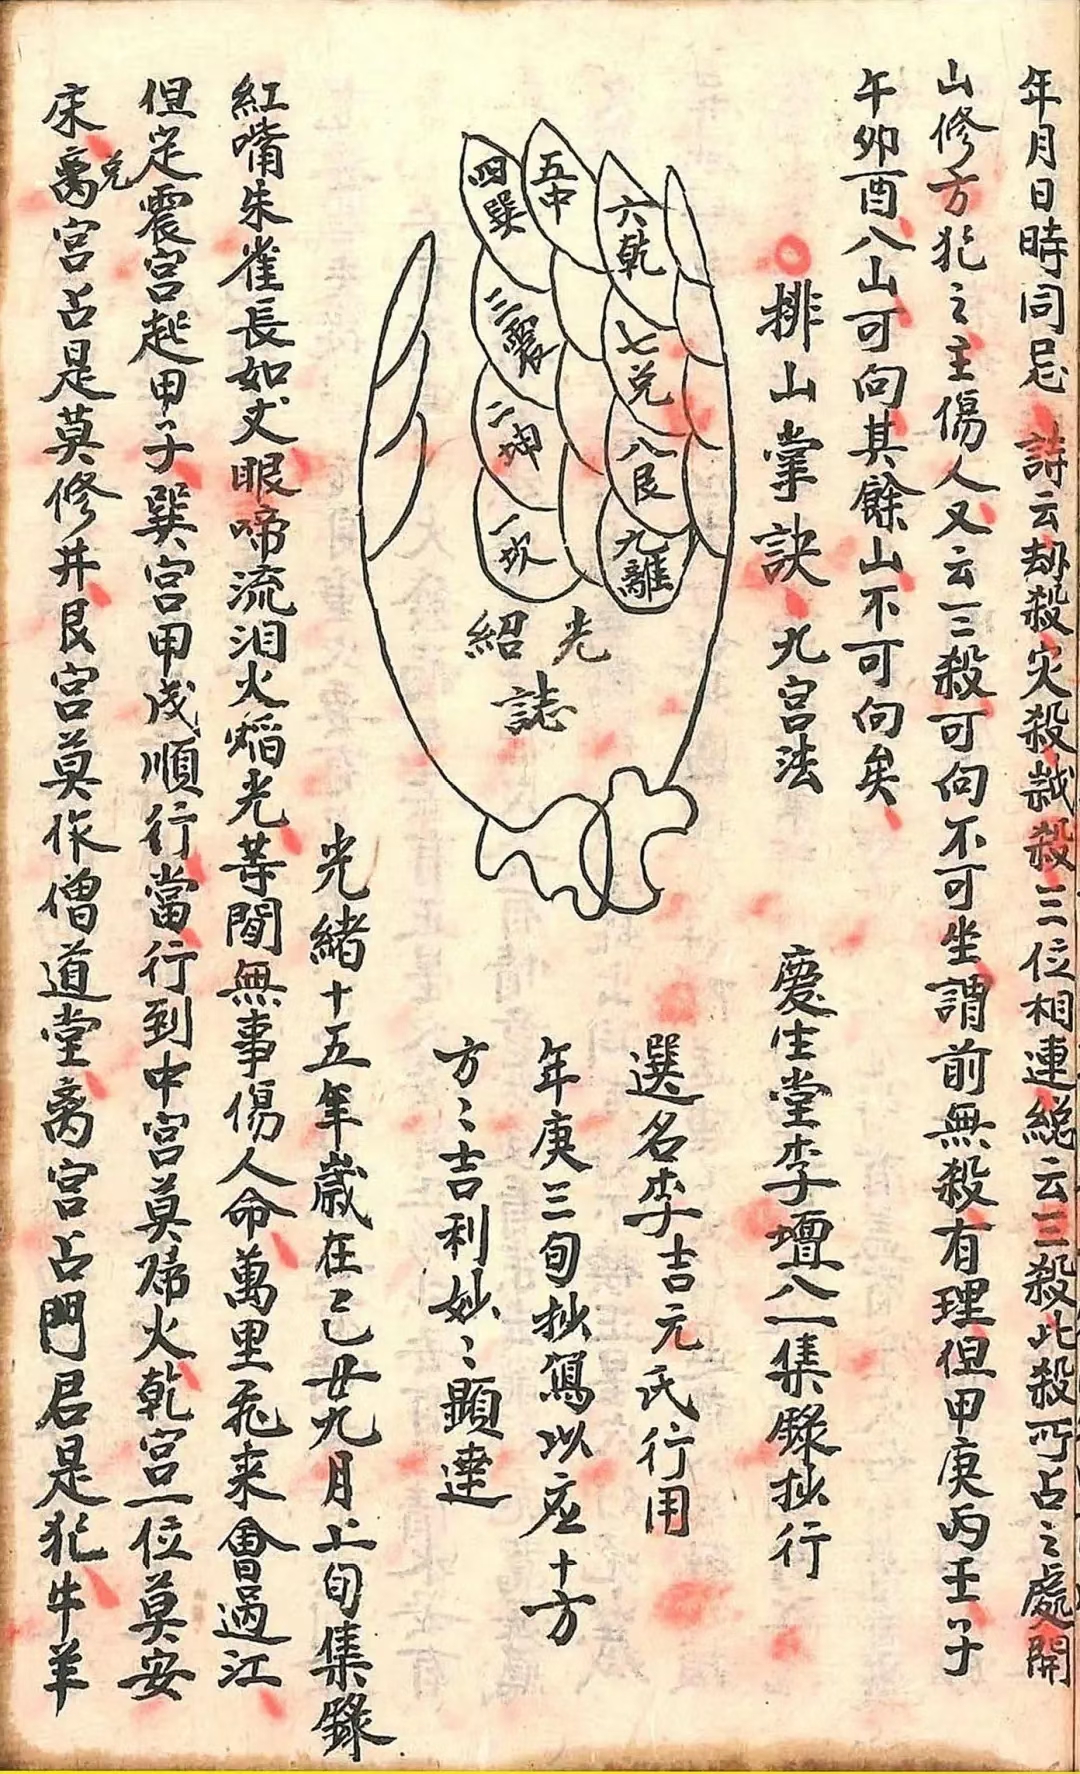 年月日時同忌詩云劫殺灾殺歲殺三位相連縂云三殺此殺所占之處開
山修方犯之主傷人又云三殺可向不可坐謂前無殺有理但甲庚丙壬子
午卯酉八山可向其餘山不可向矣
排山掌訣九宫法
慶生堂李壇八一集錄抄行
六乾
七兑
八艮
九離
五中
四巽
三震
二坤
一坎
光紹誌
選名李吉元氏行用
年庚三旬抄寫以应十方
方〻吉利妙〻顯達
光緒十五年歲在己丑九月上旬集錄
紅嘴朱雀長如丈眼啼流泪火焰光等閒無事傷人命萬里飛来會過江
但定震宫起甲子巽宫甲戌順行當行到中宫莫歸火乾宫一位莫安
床兑离宫占是莫修井艮宫莫作僧道堂离宫占門君是犯牛羊